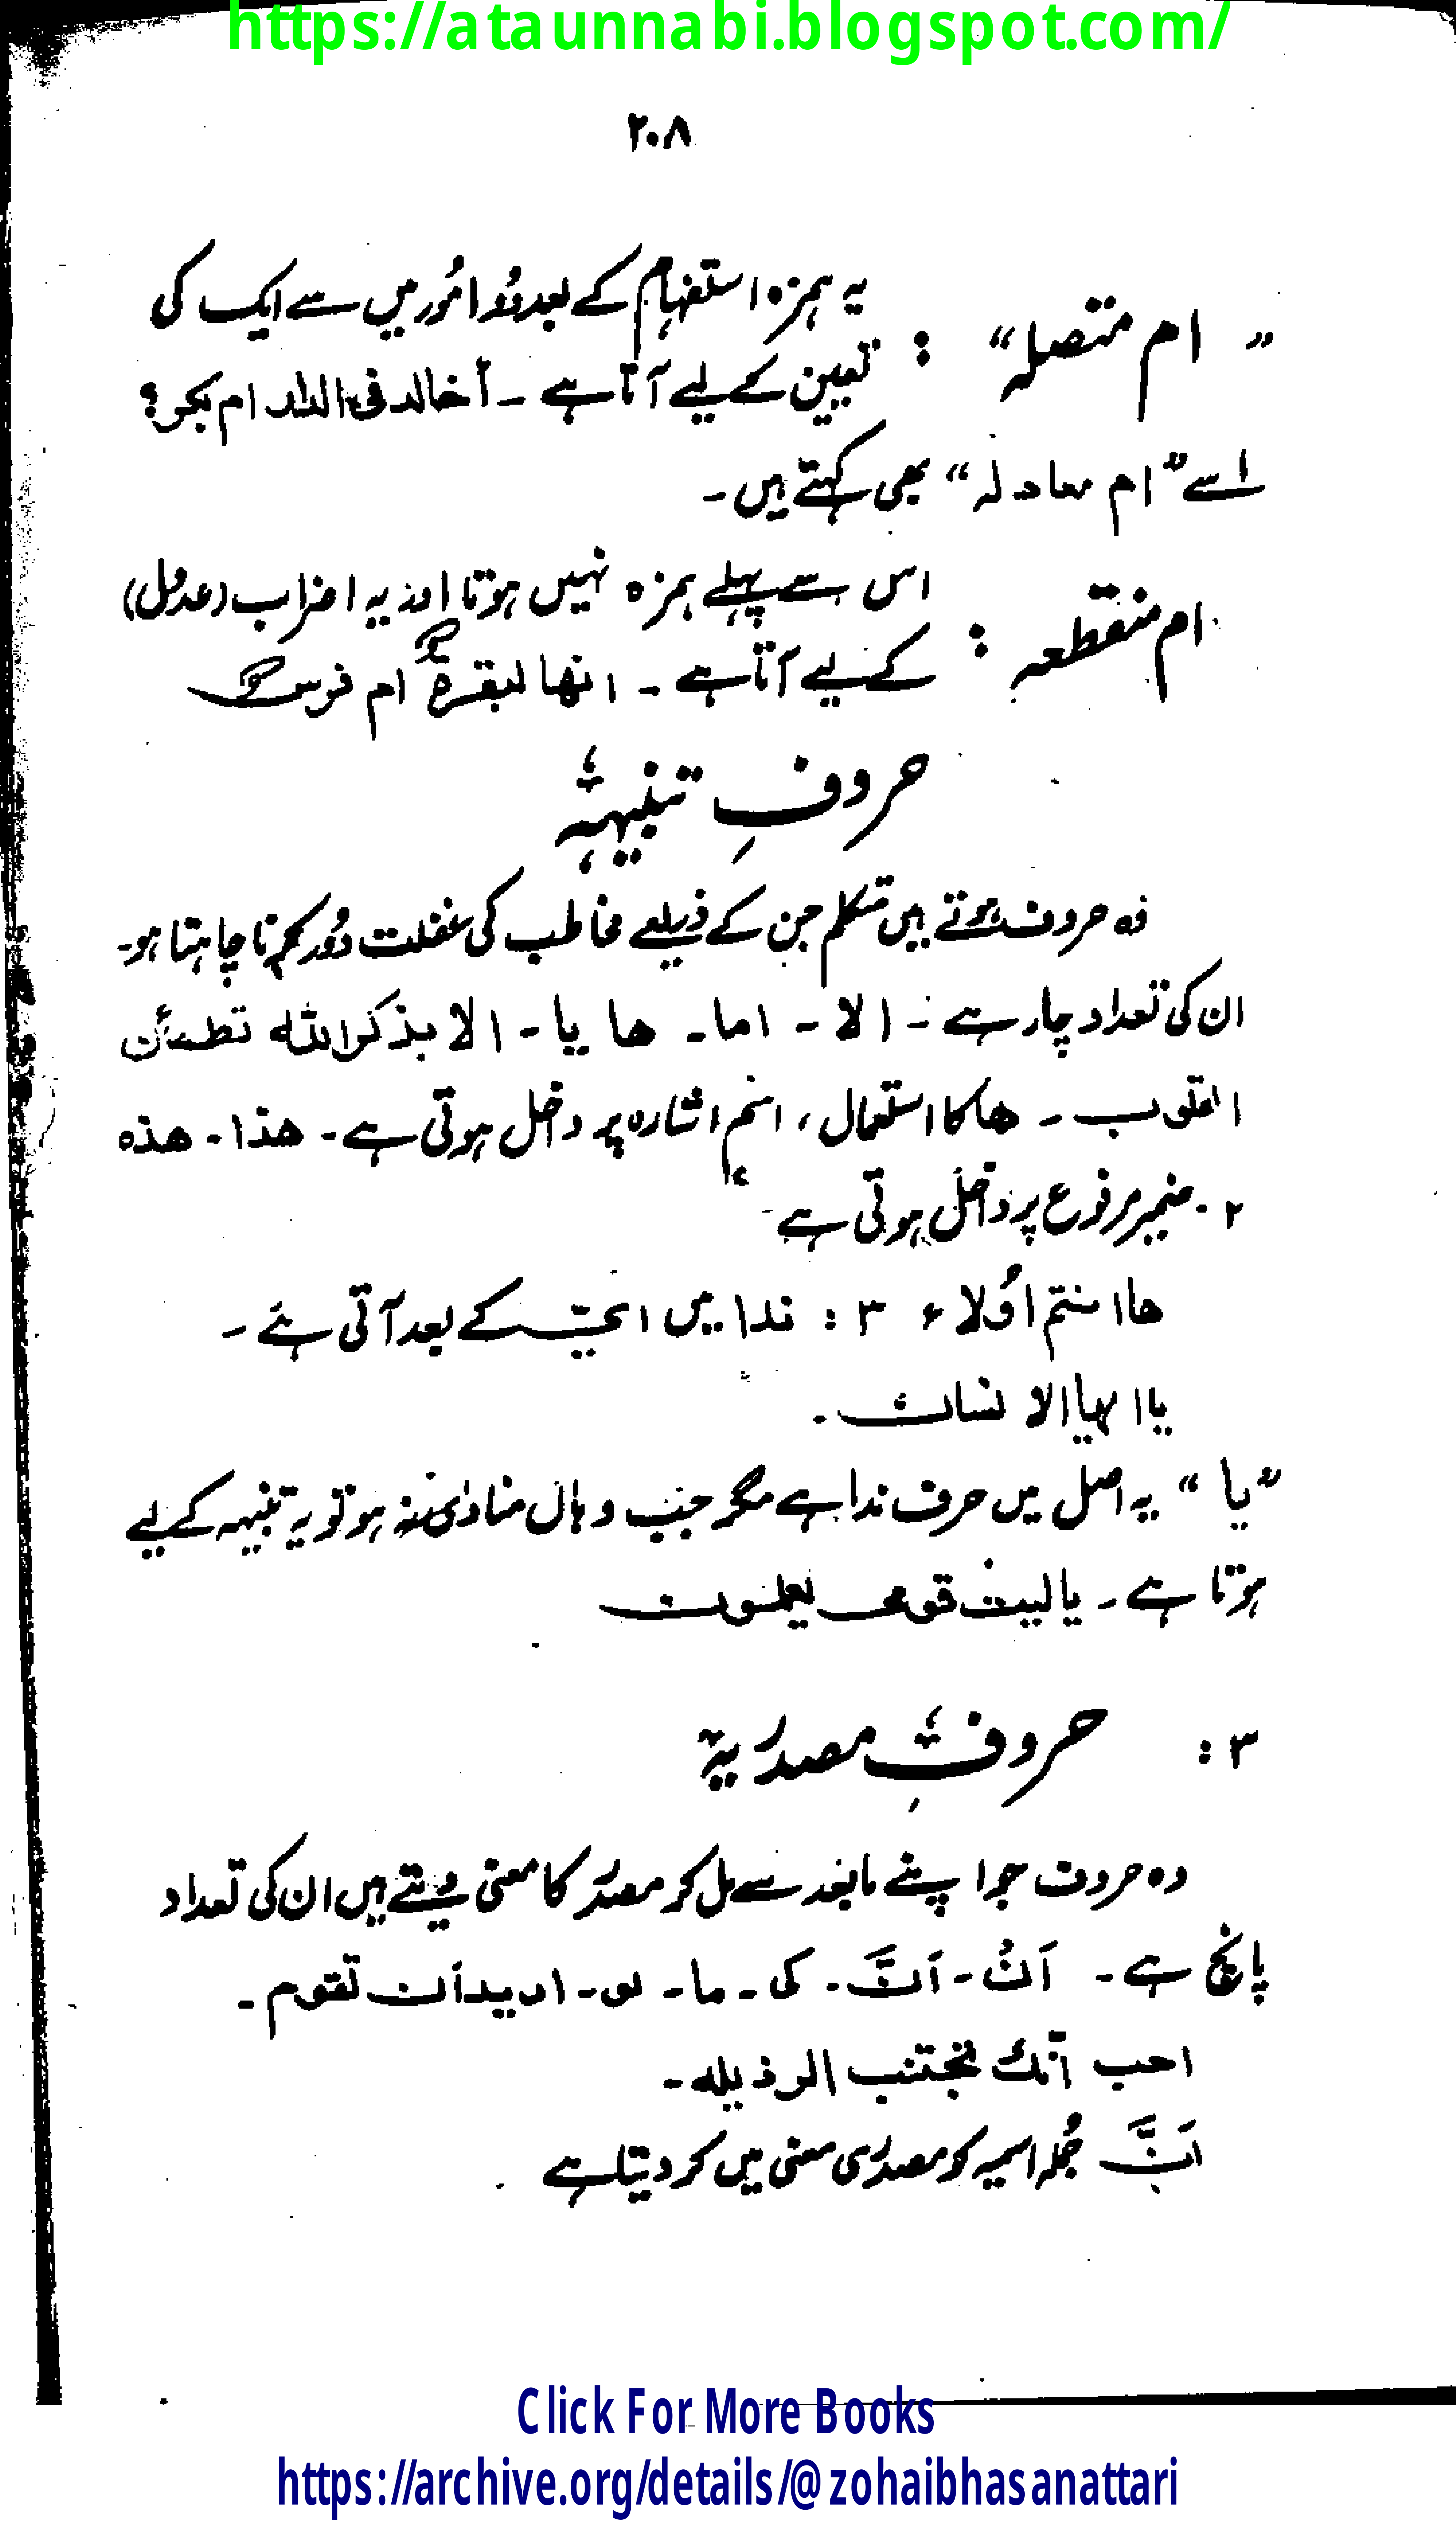 https://ataunnabi.blogspot.com/
۲۰۸
” ام متصلہ “ : یہ ہمزہ استفہام کے بعد دو امُور میں سے ایک کی
تعیین کے لیے آتا ہے ۔ أخالد فی الدار ام بکر؟
اسے ”ام معادلہ“ بھی کہتے ہیں ۔
ام منقطعہ : اس سے پہلے ہمزہ نہیں ہوتا اور یہ اضراب (عدول)
کے لیے آتا ہے ۔ انها لبقرةٌ ام فرسٌ
حروفِ تنبیہہ
وہ حروف ہوتے ہیں متکلم جن کے ذریعے مخاطب کی غفلت دُور کرنا چاہتا ہو۔
ان کی تعداد چار ہے ۔ الا ۔ اما ۔ ھا یا ۔ الا بذکر اللہ تطمئن
القلوب ۔ ھا کا استعمال ، اسم اشارہ پر داخل ہوتی ہے ۔ هذا ۔ هذه
۲ ۔ ضمیر مرفوع پر داخل ہوتی ہے
ھا انتم اُولاء ۳ : ندا میں ایّ کے بعد آتی ہے ۔
یا ایها الانسان ۔
”یا“ یہ اصل میں حرف ندا ہے مگر جب وہاں منادیٰ نہ ہو تو یہ تنبیہہ کے لیے
ہوتا ہے ۔ یالیت قومی یعلمون
۳ : حروفِ مصدریہ
وہ حروف جو اپنے مابعد سے مل کر مصدر کا معنی دیتے ہیں ان کی تعداد
پانچ ہے ۔ اَنْ ۔ اَنَّ ۔ کی ۔ ما ۔ لو ۔ ارید أن تقوم ۔
احب انّک تجتنب الرذیله ۔
اَنَّ جُملہ اسمیہ کو مصدری معنی میں کر دیتا ہے
Click For More Books
https://archive.org/details/@zohaibhasanattari